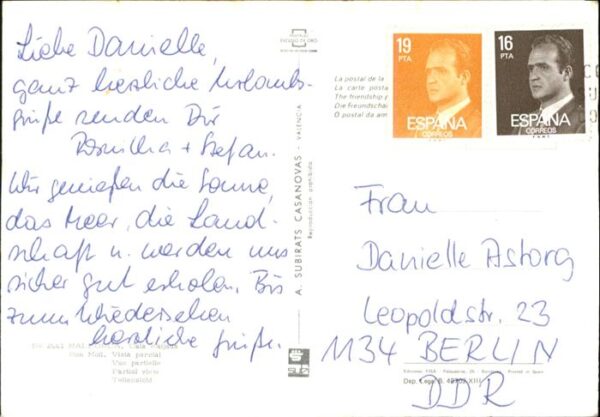 Liebe Danielle,
ganz herzliche Urlaubs-
grüße senden Dir
+ Stefan.
Wir genießen die Sonne,
das Meer, die Land-
schaft u. werden uns
sicher gut erholen. Bis
zum Wiedersehen
herzliche Grüße.
Vista parcial
Vue partielle
Partial view
Teilansicht
A. SUBIRATS CASANOVAS - VALENCIA
Reproducción prohibida
La postal de la
La carte posta
The friendship
Die Freundschaf
O postal da am
19
PTA
ESPAÑA
CORREOS
16
PTA
ESPAÑA
CORREOS
Frau
Danielle Astorg
Leopoldstr. 23
1134 BERLIN
DDR
Printed in Spain
Dep. Legal B.